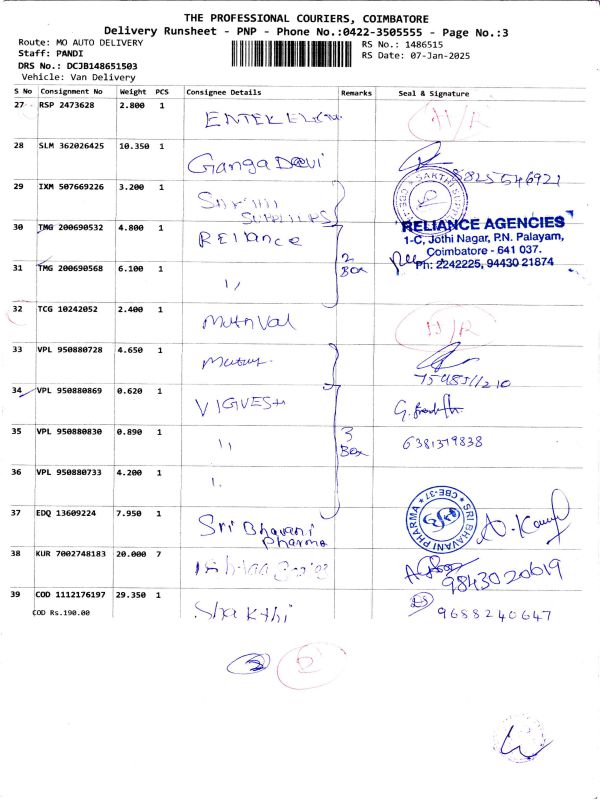 THE PROFESSIONAL COURIERS, COIMBATORE
Delivery Runsheet - PNP - Phone No.:0422-3505555 - Page No.:3
Route: MO AUTO DELIVERY
RS No.: 1486515
Staff: PANDI
RS Date: 07-Jan-2025
DRS No.: DCJB148651503
Vehicle: Van Delivery
S No Consignment No Weight PCS Consignee Details Remarks Seal & Signature
27 RSP 2473628 2.800 1 H/R
28 SLM 362026425 10.350 1 Ganga Devi
29 IXM 507669226 3.200 1 SUPPLIERS
30 TMG 200690532 4.800 1 Reliance
RELIANCE AGENCIES
1-C, Jothi Nagar, P.N. Palayam,
Coimbatore - 641 037.
Ph: 2242225, 94430 21874
31 TMG 200690568 6.100 1 ,, 2 Box
32 TCG 10242052 2.400 1 H/R
33 VPL 950880728 4.650 1
34 VPL 950880869 0.620 1 VIGNESH
35 VPL 950880830 0.890 1 ,, 3 Box 6381379838
36 VPL 950880733 4.200 1
37 EDQ 13609224 7.950 1 Sri Bhavani Pharma
SRI BHAVANI PHARMA CBE-37
38 KUR 7002748183 20.000 7 9843020619
39 COD 1112176197 29.350 1 Shakthi 9688240647
COD Rs.190.00